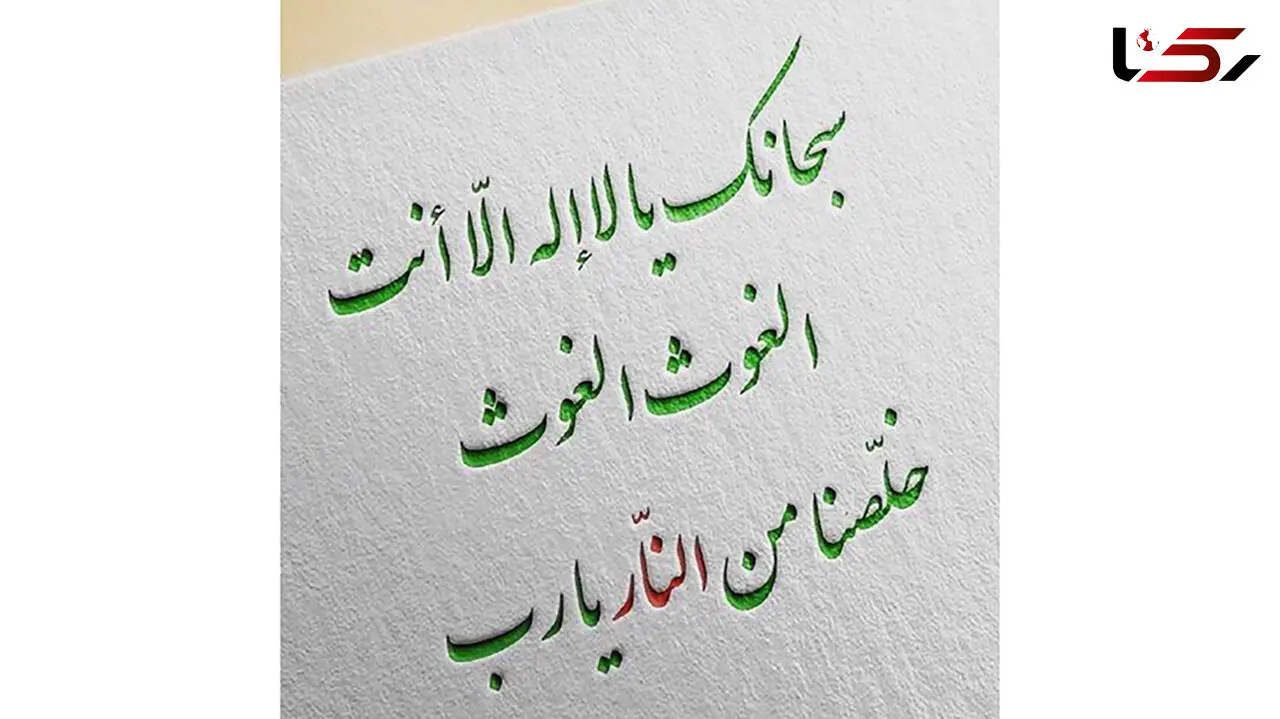 رکنا
سبحانك يا لا إله الّا أنت
الغوث الغوث
خلّصنا من النّار يا رب